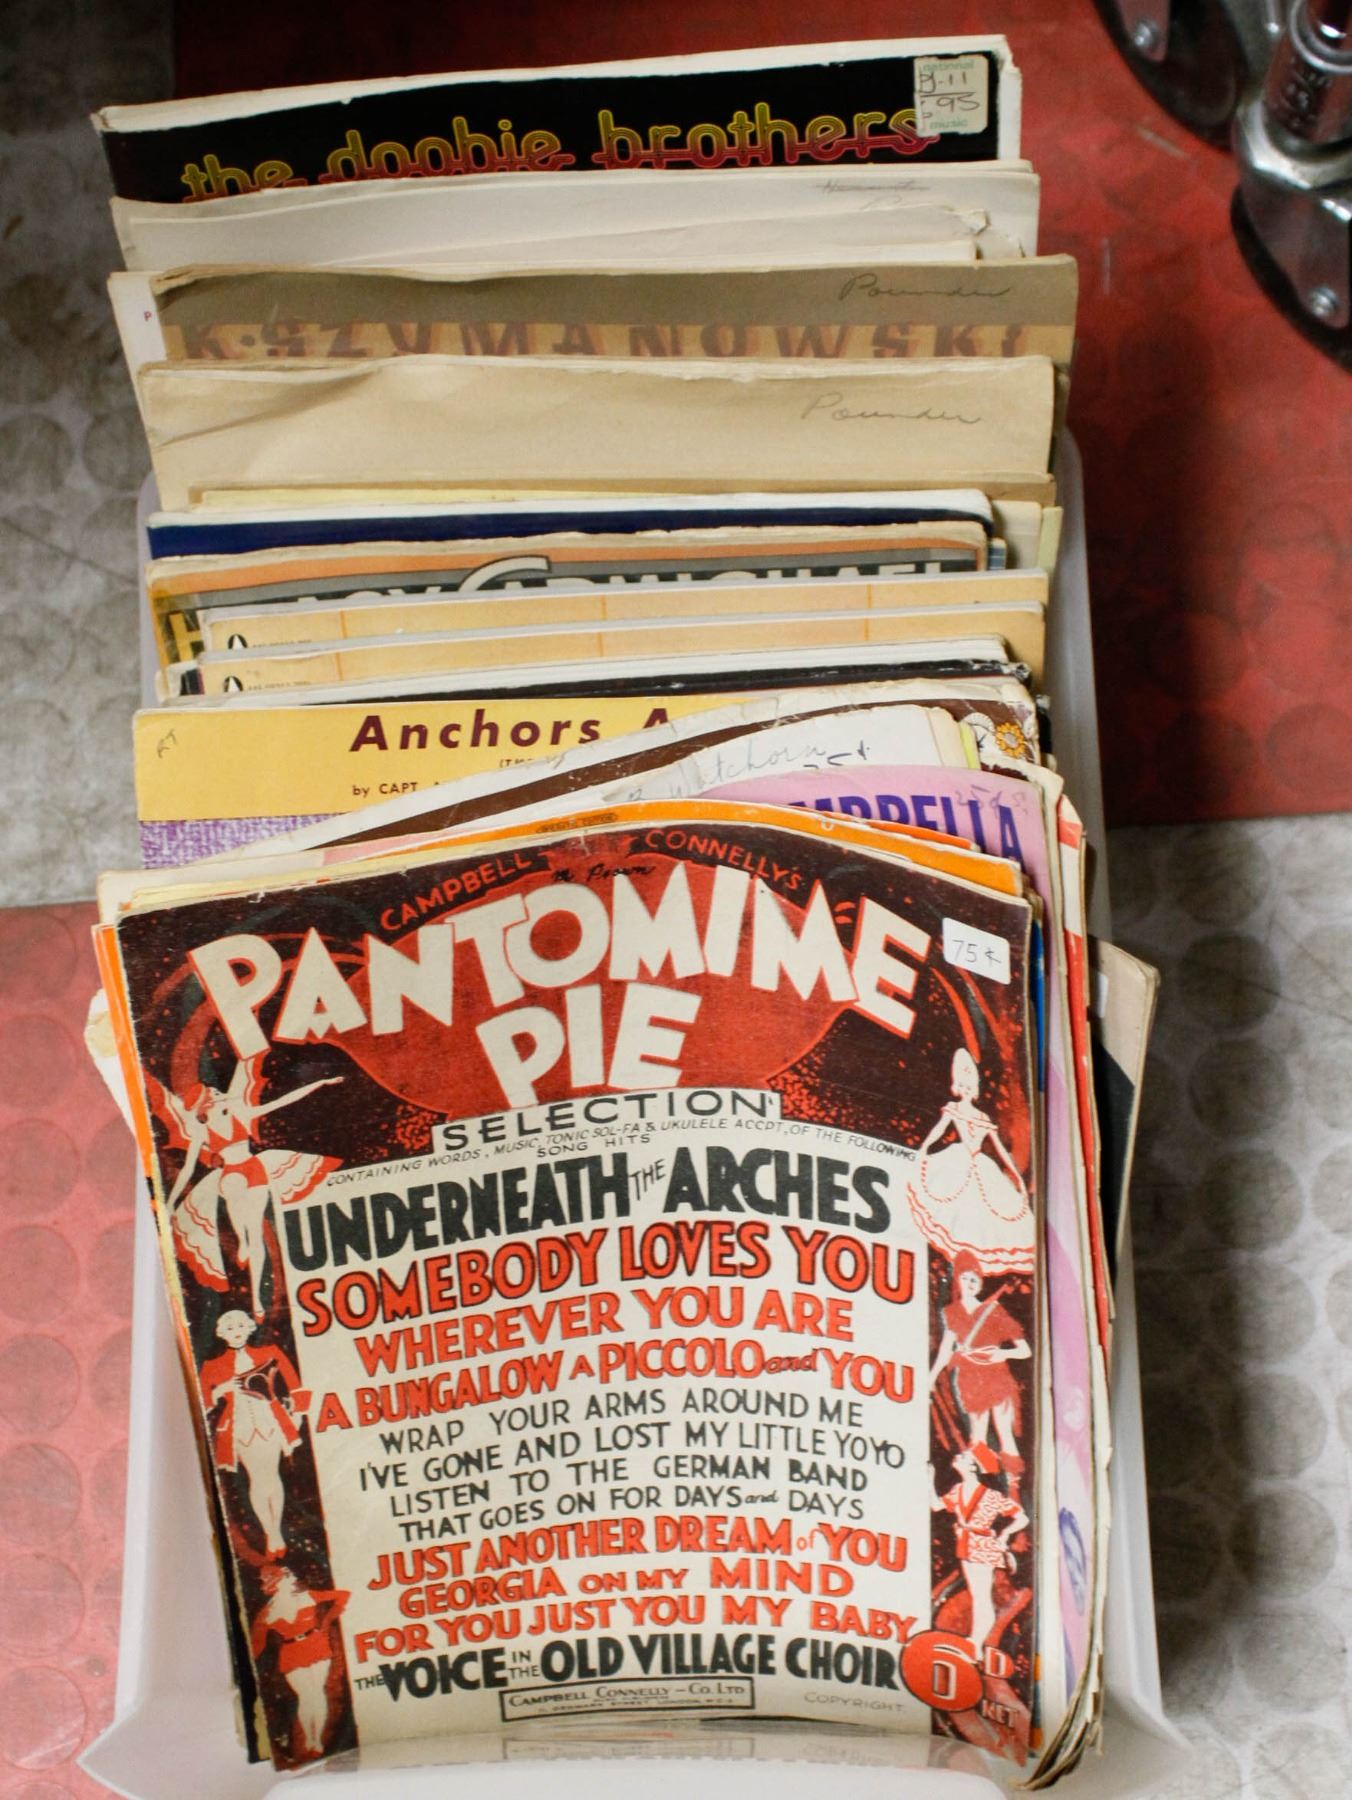 national
9-11
95
music
the doobie brothers
Pounder
K·SZYMANOWSKI
Pounder
CARMICHAEL
RT
Anchors A
by CAPT. A
Watchorn
25¢
25¢
UMBRELLA
CAMPBELL CONNELLY'S
PANTOMIME
75¢
PIE
SELECTION
CONTAINING WORDS, MUSIC, TONIC SOL-FA & UKULELE ACCPT, OF THE FOLLOWING
SONG HITS
UNDERNEATH THE ARCHES
SOMEBODY LOVES YOU
WHEREVER YOU ARE
A BUNGALOW A PICCOLO and YOU
WRAP YOUR ARMS AROUND ME
I'VE GONE AND LOST MY LITTLE YOYO
LISTEN TO THE GERMAN BAND
THAT GOES ON FOR DAYS and DAYS
JUST ANOTHER DREAM of YOU
GEORGIA ON MY MIND
FOR YOU JUST YOU MY BABY
THE VOICE IN THE OLD VILLAGE CHOIR
6D NET
CAMPBELL CONNELLY – CO. LTD
COPYRIGHT